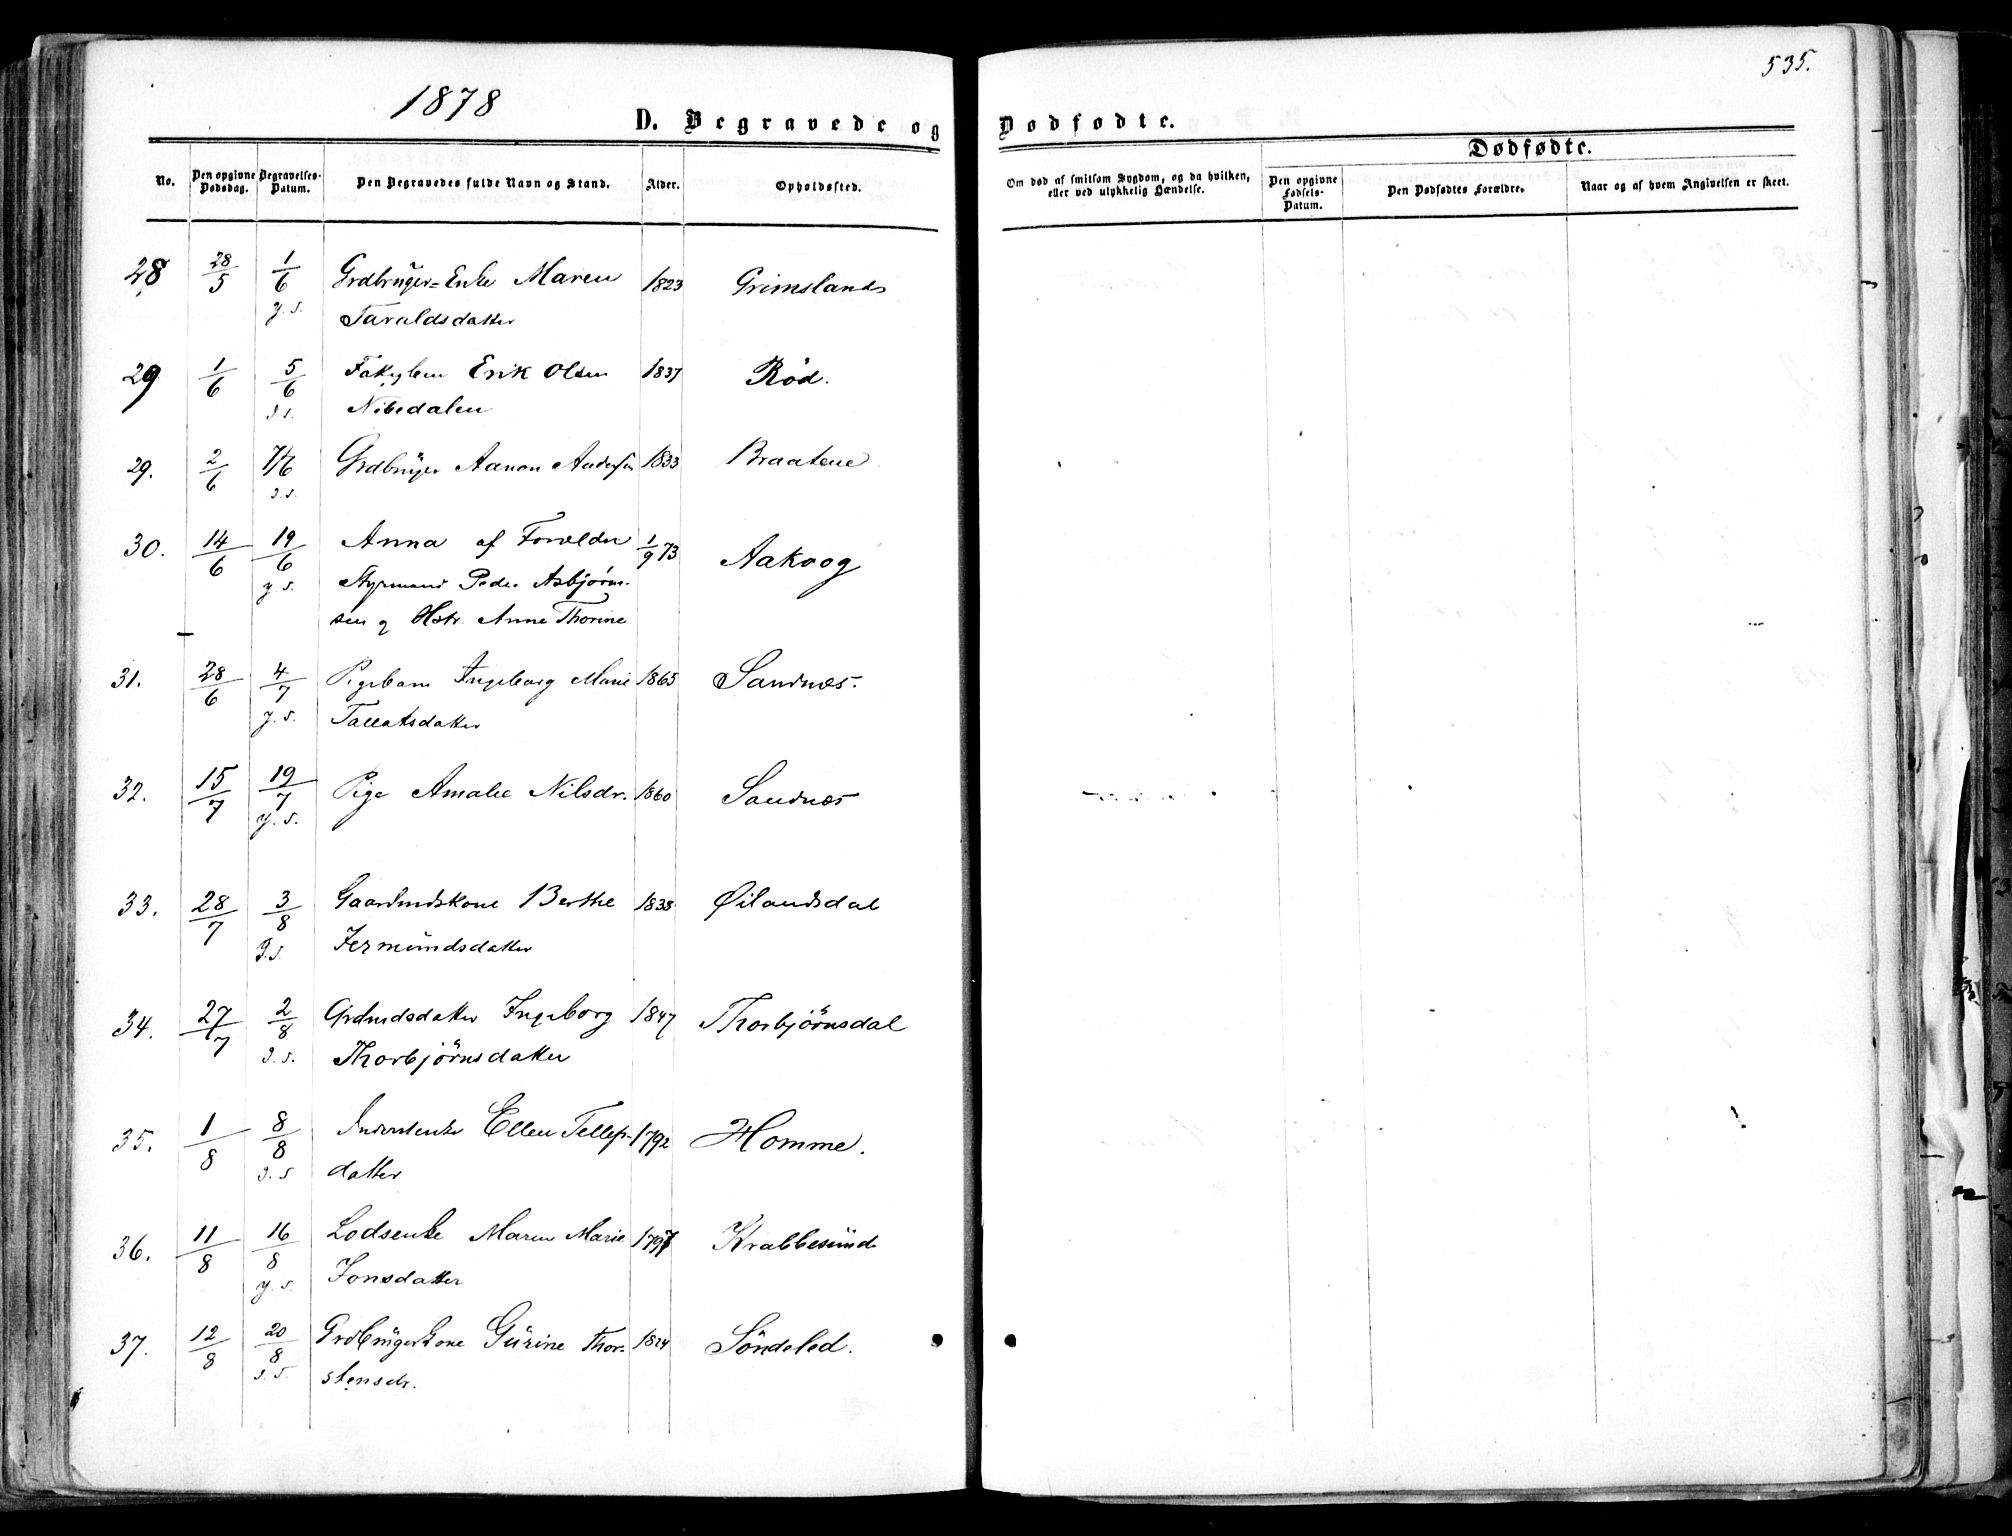 535.
1878
D. Begravede og Dødfødte.
Dødfødte.
No.
Den opgivne Dødsdag.
Begravelses-Datum.
Den Begravedes fulde Navn og Stand.
Alder.
Opholdssted.
Om død af smitsom Sygdom, og da hvilken, eller ved ulykkelig Hændelse.
Den opgivne Fødsels-Datum.
Den Dødfødtes Forældre.
Naar og af hvem Angivelsen er skeet.
28 28/5 1/6 Grdbruger-Enke Maren 1823 Grimsland
Taraldsdatter
29 1/6 5/6 Erik Olsen 1837 Röd.
Nibedalen
29. 2/6 7/6 Grdbruger Aanon Andersen 1833 Braatene
30. 14/6 19/6 Anna af Forældre 1/9 73 Aakvog
Styrmand Peder Asbjørn-
sen og Hstr. Anne Thorine
31. 28/6 4/7 Pigebarn Ingeborg Marie 1865 Sandnæs.
Tallaksdatter
32. 15/7 19/7 Pige Amalie Nilsdr. 1860 Sandnæs
33. 28/7 3/8 Gaardmdskone Berthe 1838 Øilandsdal
Jermundsdatter
34. 27/7 2/8 Grdmdsdatter Ingeborg 1847 Thorbjörnsdal
Thorbjörnsdatter
35. 1/8 8/8 Inderstenke Ellen Tellefs- 1792 Homme.
datter
36. 11/8 16/8 Lodsenke Maren Marie 1797 Krabbesund
Jonsdatter
37. 12/8 20/8 Grdbrugerkone Gurine Thor- 1824 Söndeled.
stensdr.